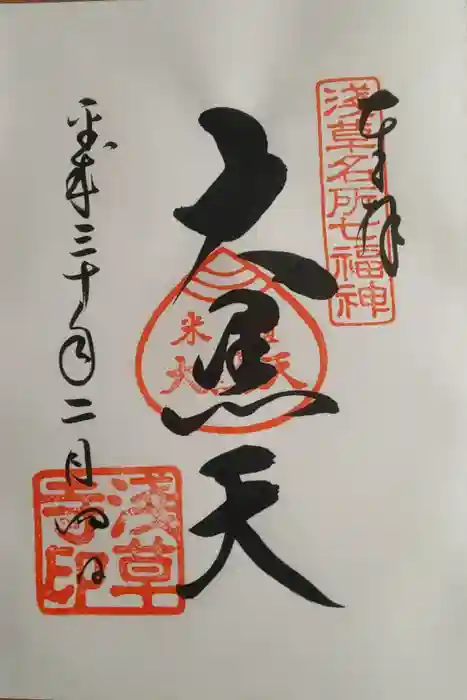 奉拝
浅草名所七福神
大黒天
米
大黒天
平成三十年二月四日
浅草
寺印